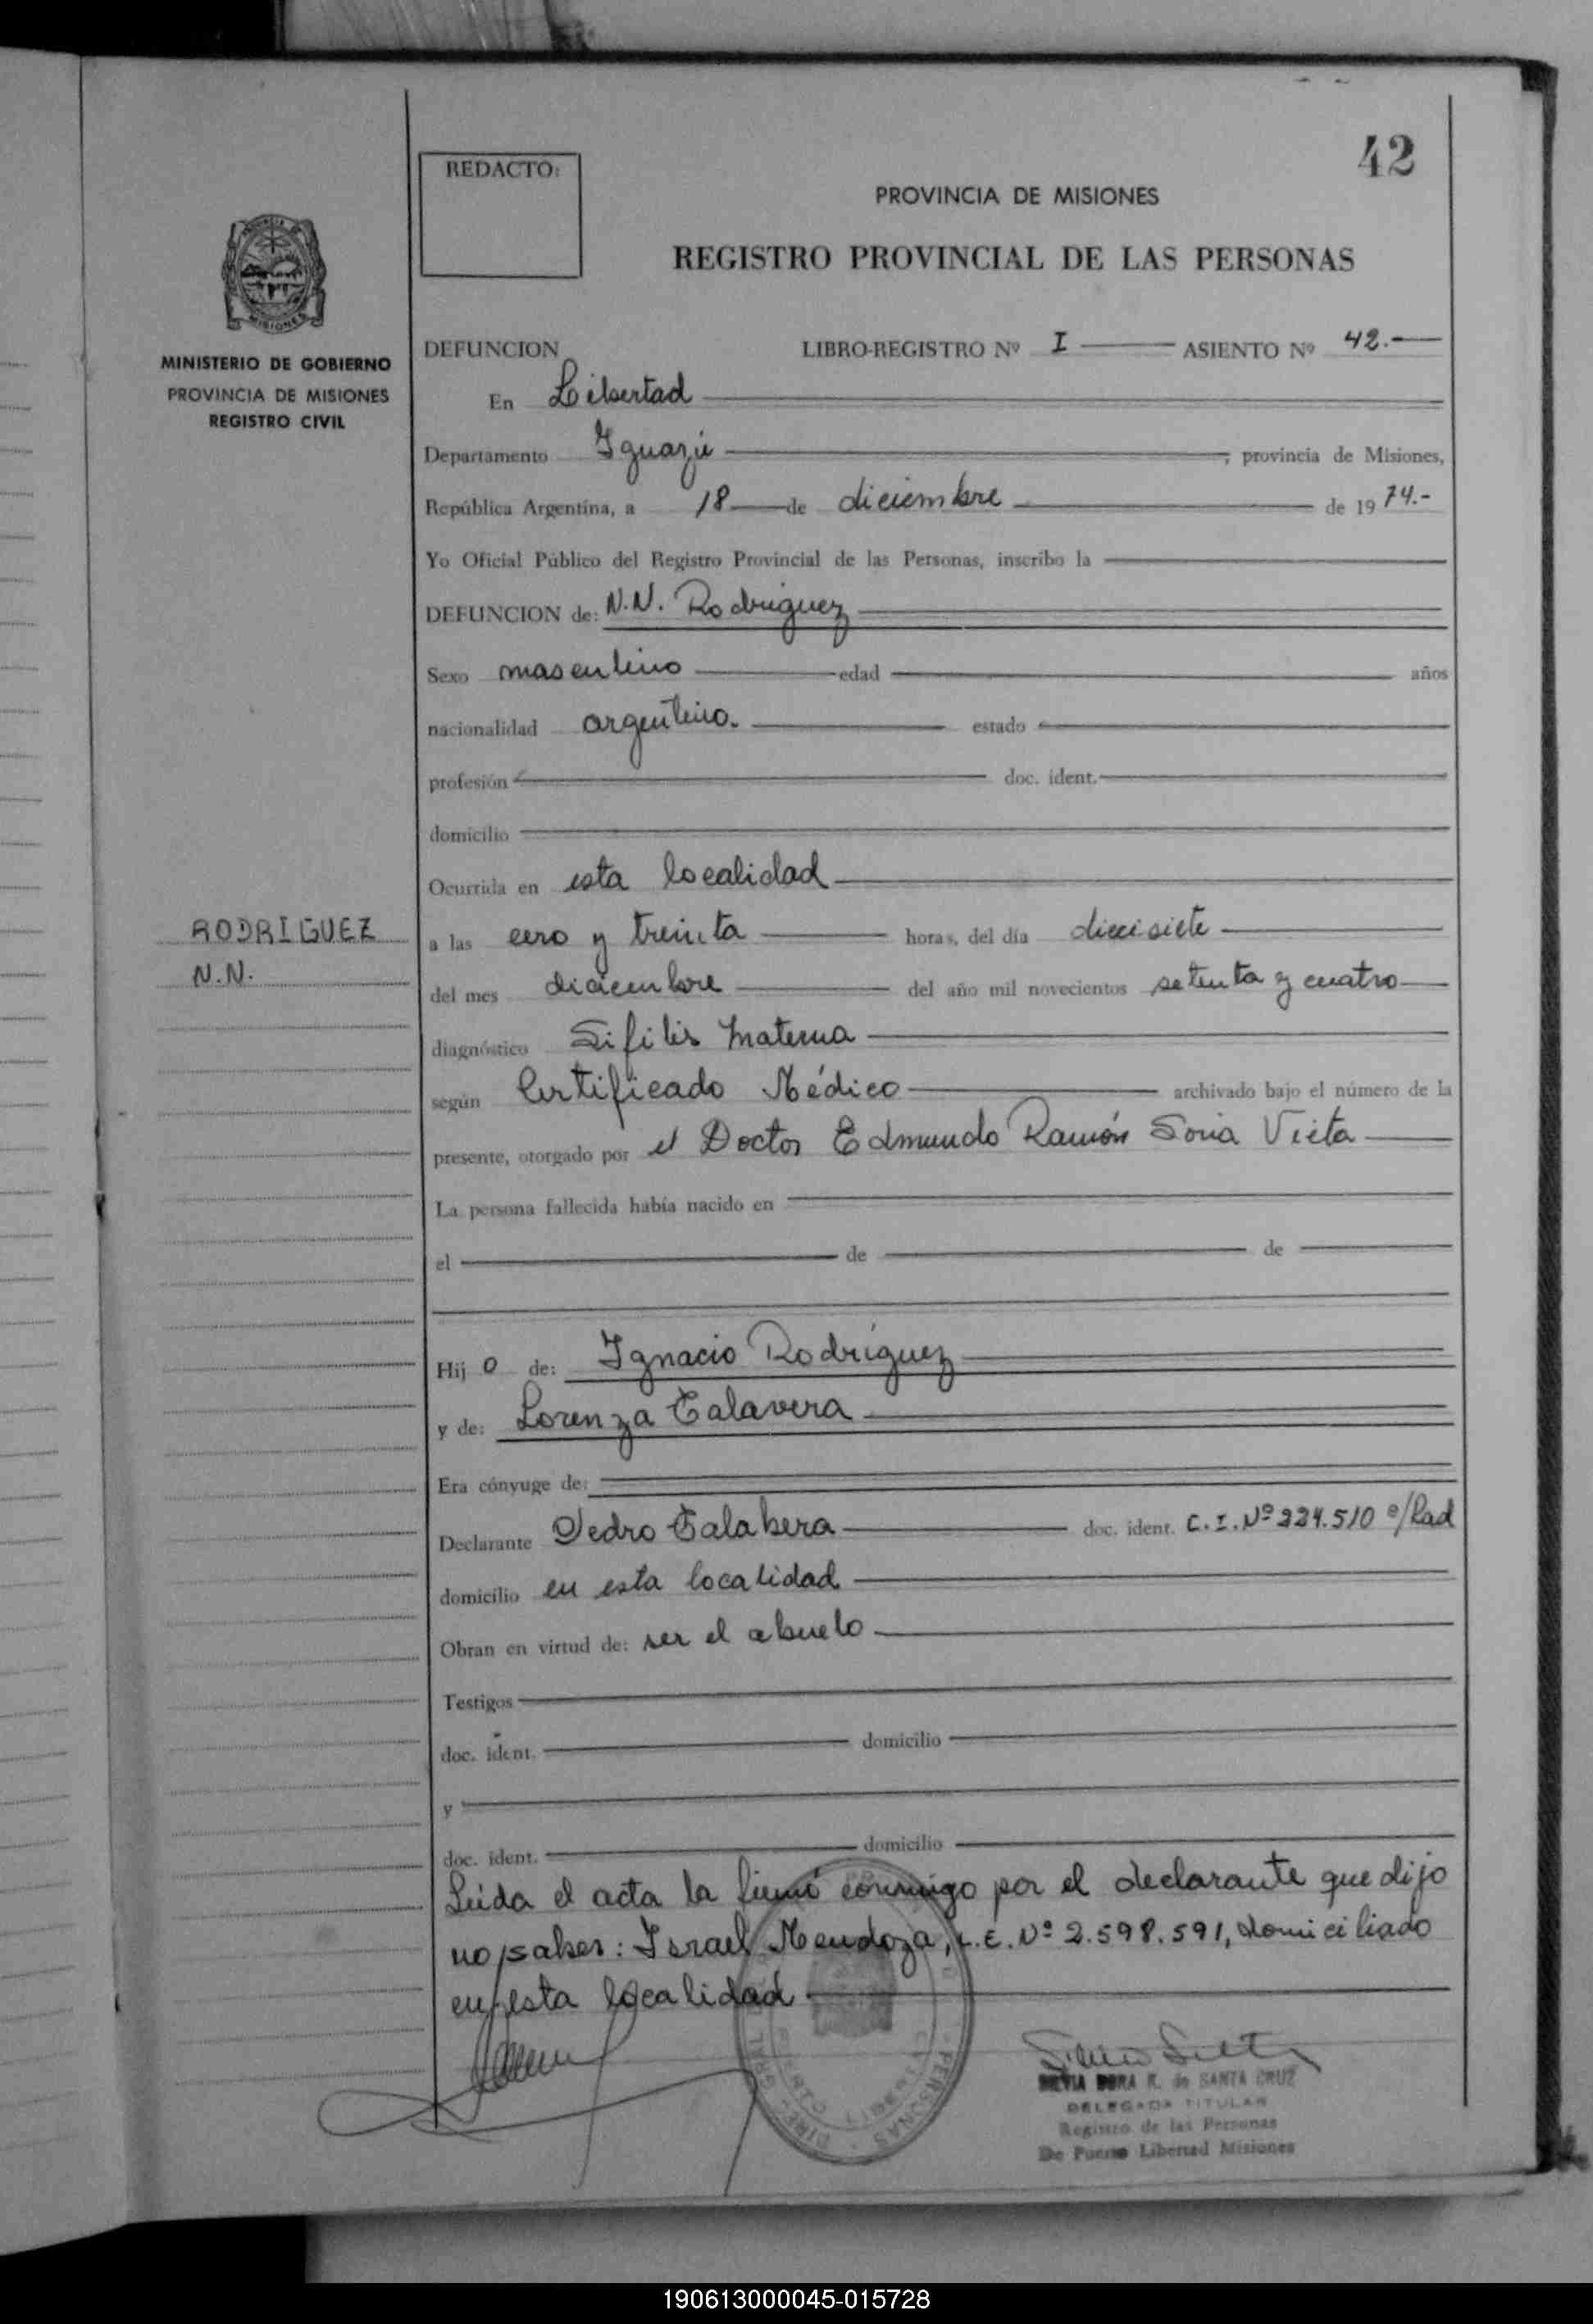 42
REDACTO:
PROVINCIA DE MISIONES
REGISTRO PROVINCIAL DE LAS PERSONAS
MISIONES
MINISTERIO DE GOBIERNO
PROVINCIA DE MISIONES
REGISTRO CIVIL
DEFUNCION LIBRO-REGISTRO Nº I ASIENTO Nº 42.-
En Libertad
Departamento Iguazú, provincia de Misiones,
República Argentina, a 18 de diciembre de 1974.-
Yo Oficial Público del Registro Provincial de las Personas, inscribo la
DEFUNCION de: N.N. Rodriguez
Sexo masculino edad años
nacionalidad argentino. estado
profesión doc. ident.
domicilio
Ocurrida en esta localidad
RODRIGUEZ
N.N.
a las cero y treinta horas, del día diecisiete
del mes diciembre del año mil novecientos setenta y cuatro
diagnóstico Sifilis Materna
según Certificado Médico archivado bajo el número de la
presente, otorgado por el Doctor Edmundo Ramón Soria Vieta
La persona fallecida había nacido en
el de de
Hijo de: Ignacio Rodríguez
y de: Lorenza Talavera
Era cónyuge de:
Declarante Pedro Talabera doc. ident. C.I. Nº 224.510
domicilio en esta localidad
Obran en virtud de: ser el abuelo
Testigos
doc. ident. domicilio
y
doc. ident. domicilio
Leida el acta la firmó conmigo por el declarante que dijo
no saber: Israel Mendoza, L.E. Nº 2.598.591, domiciliado
en esta localidad
SILVIA DORA R. de SANTA CRUZ
DELEGADA TITULAR
Registro de las Personas
De Puerto Libertad Misiones
190613000045-015728